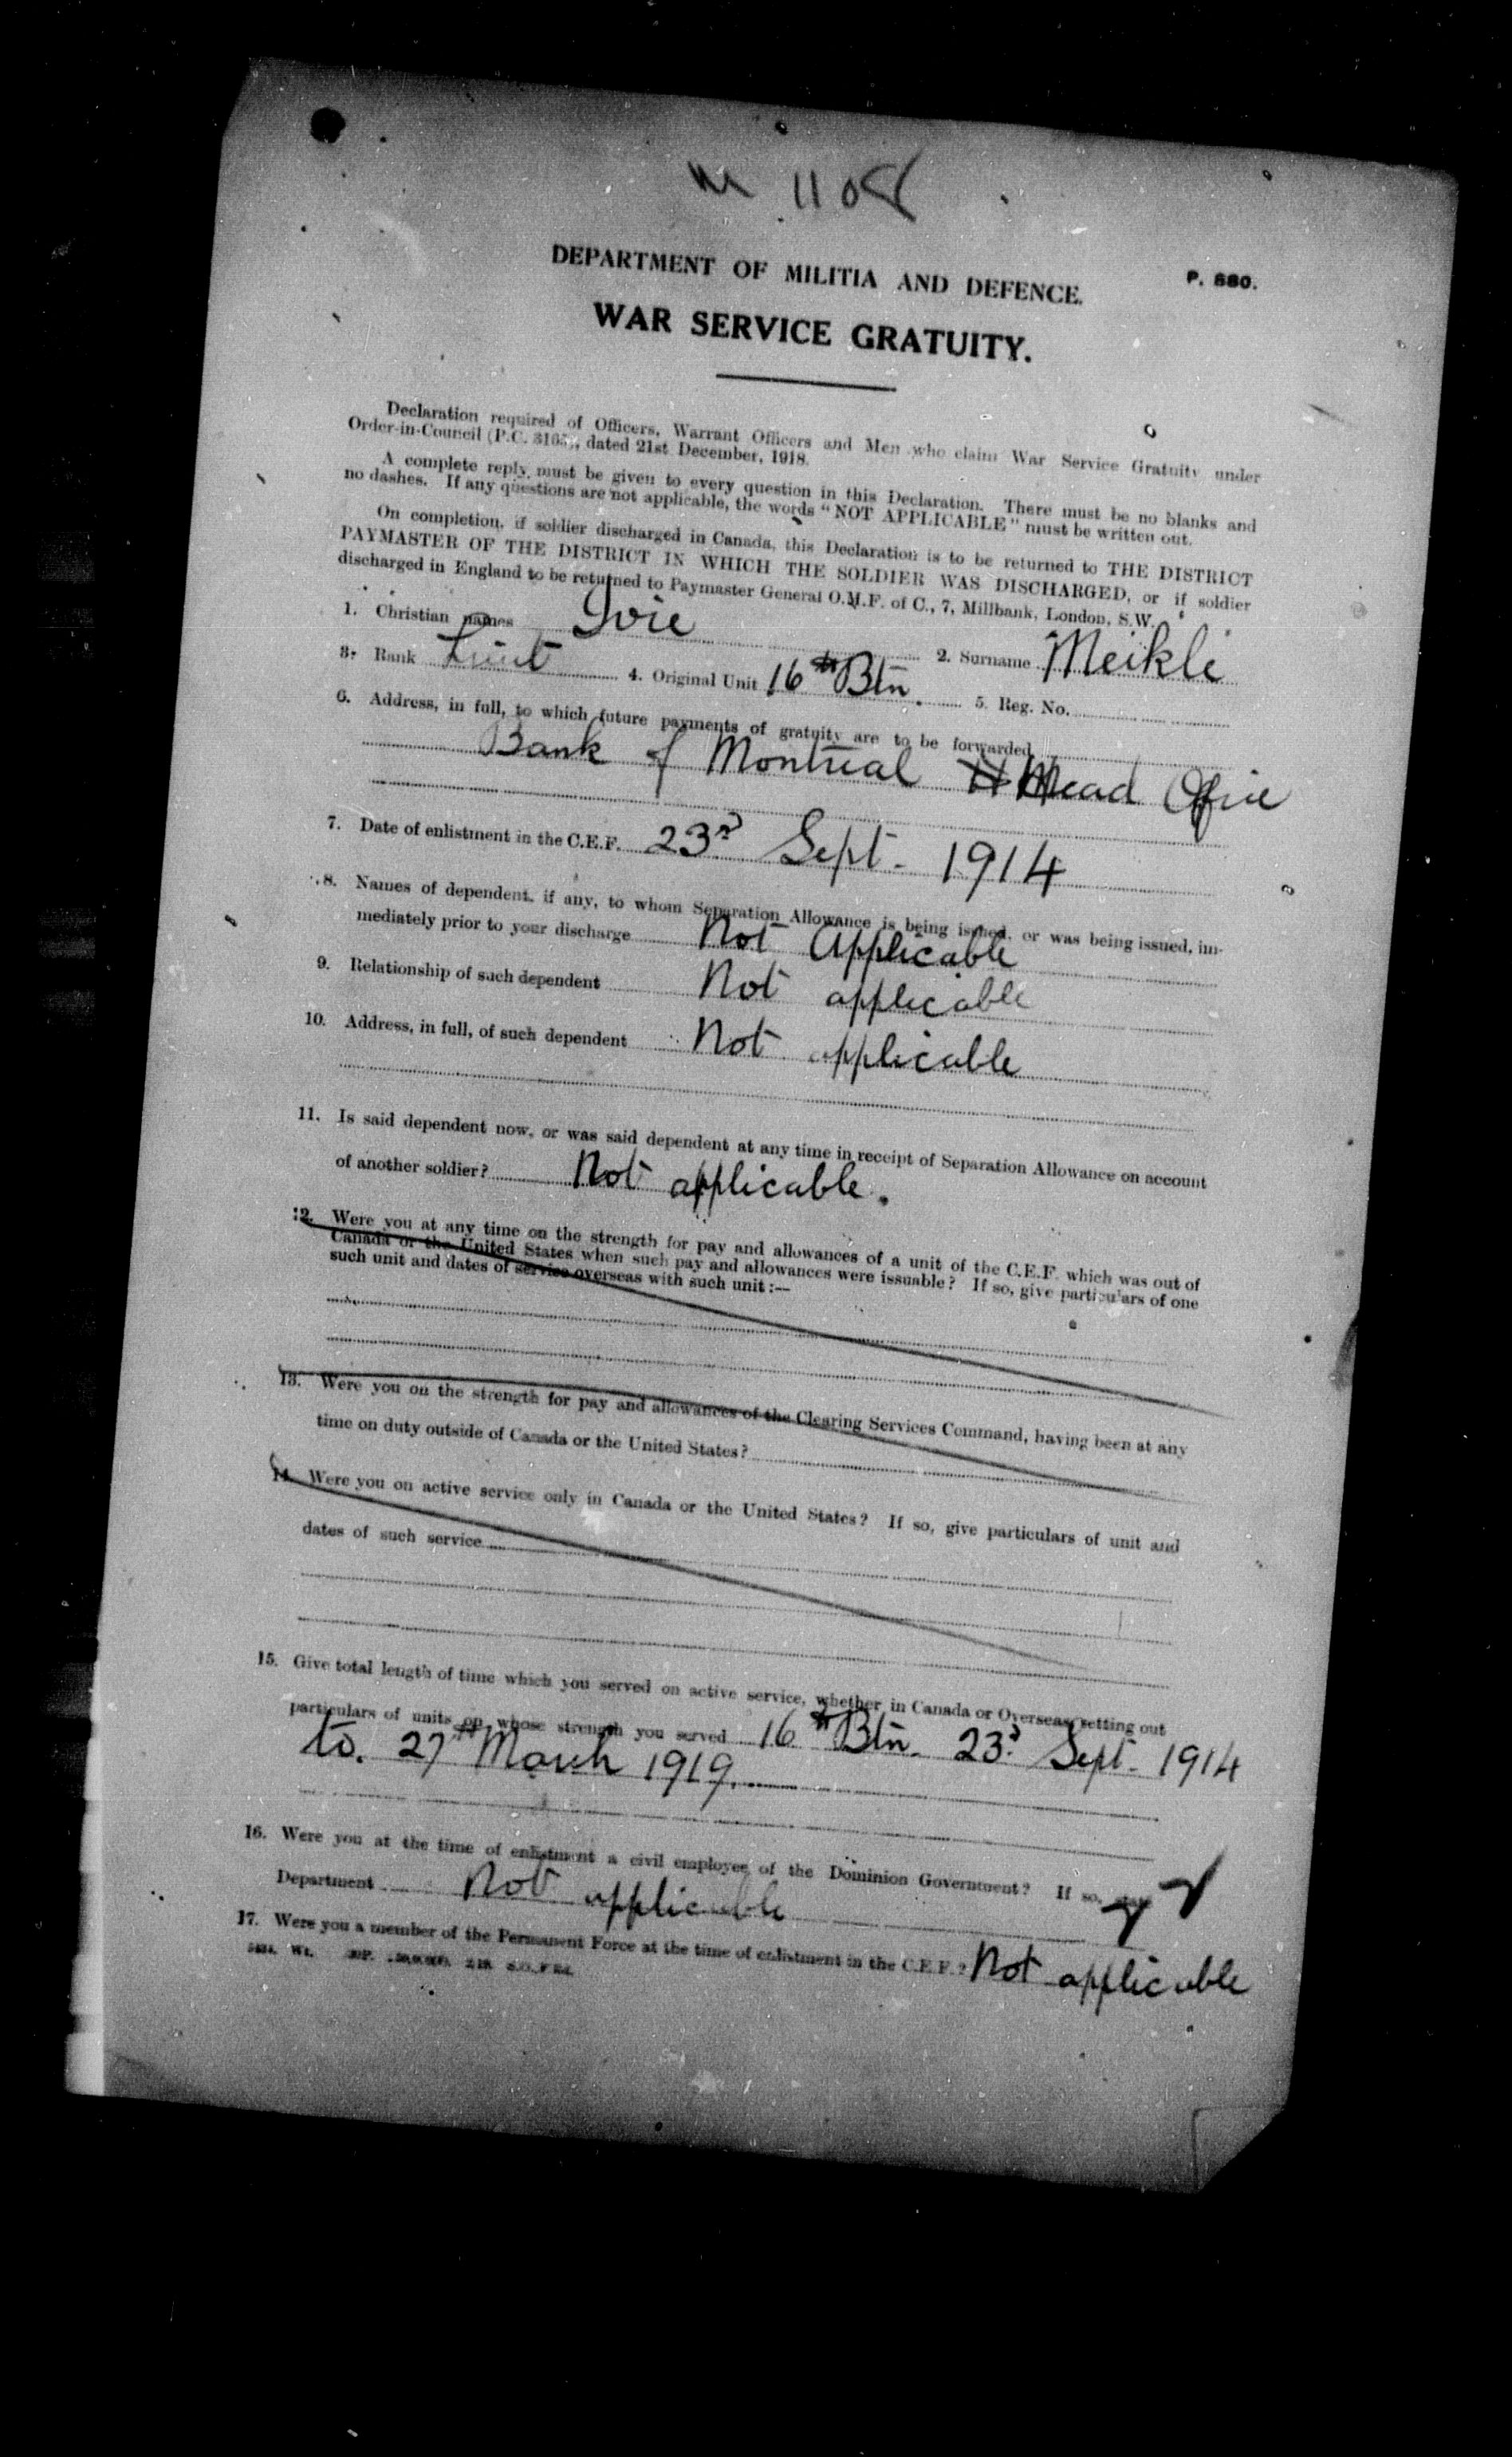 M 1108
DEPARTMENT OF MILITIA AND DEFENCE.
P. 880.
WAR SERVICE GRATUITY.
Declaration required of Officers, Warrant Officers and Men who claim War Service Gratuity under
Order-in-Council (P.C. 3165), dated 21st December, 1918.
A complete reply must be given to every question in this Declaration. There must be no blanks and
no dashes. If any questions are not applicable, the words "NOT APPLICABLE" must be written out.
On completion, if soldier discharged in Canada, this Declaration is to be returned to THE DISTRICT
PAYMASTER OF THE DISTRICT IN WHICH THE SOLDIER WAS DISCHARGED, or if soldier
discharged in England to be returned to Paymaster General O.M.F. of C., 7, Millbank, London, S.W.
1. Christian names Ivie 2. Surname Meikle
3. Rank Lieut 4. Original Unit 16th Btn. 5. Reg. No.
6. Address, in full, to which future payments of gratuity are to be forwarded
Bank of Montreal Head Office
7. Date of enlistment in the C.E.F. 23rd Sept. 1914
8. Names of dependent, if any, to whom Separation Allowance is being issued, or was being issued, im-
mediately prior to your discharge Not Applicable
9. Relationship of such dependent Not applicable
10. Address, in full, of such dependent Not applicable
11. Is said dependent now, or was said dependent at any time in receipt of Separation Allowance on account
of another soldier? Not applicable.
12. Were you at any time on the strength for pay and allowances of a unit of the C.E.F. which was out of
Canada or the United States when such pay and allowances were issuable? If so, give particulars of one
such unit and dates of service overseas with such unit:--
13. Were you on the strength for pay and allowances of the Clearing Services Command, having been at any
time on duty outside of Canada or the United States?
14. Were you on active service only in Canada or the United States? If so, give particulars of unit and
dates of such service
15. Give total length of time which you served on active service, whether in Canada or Overseas, setting out
particulars of units on whose strength you served 16th Btn. 23rd Sept. 1914
to. 27th March 1919.
16. Were you at the time of enlistment a civil employee of the Dominion Government? If so,
Department Not applicable
17. Were you a member of the Permanent Force at the time of enlistment in the C.E.F.? Not applicable